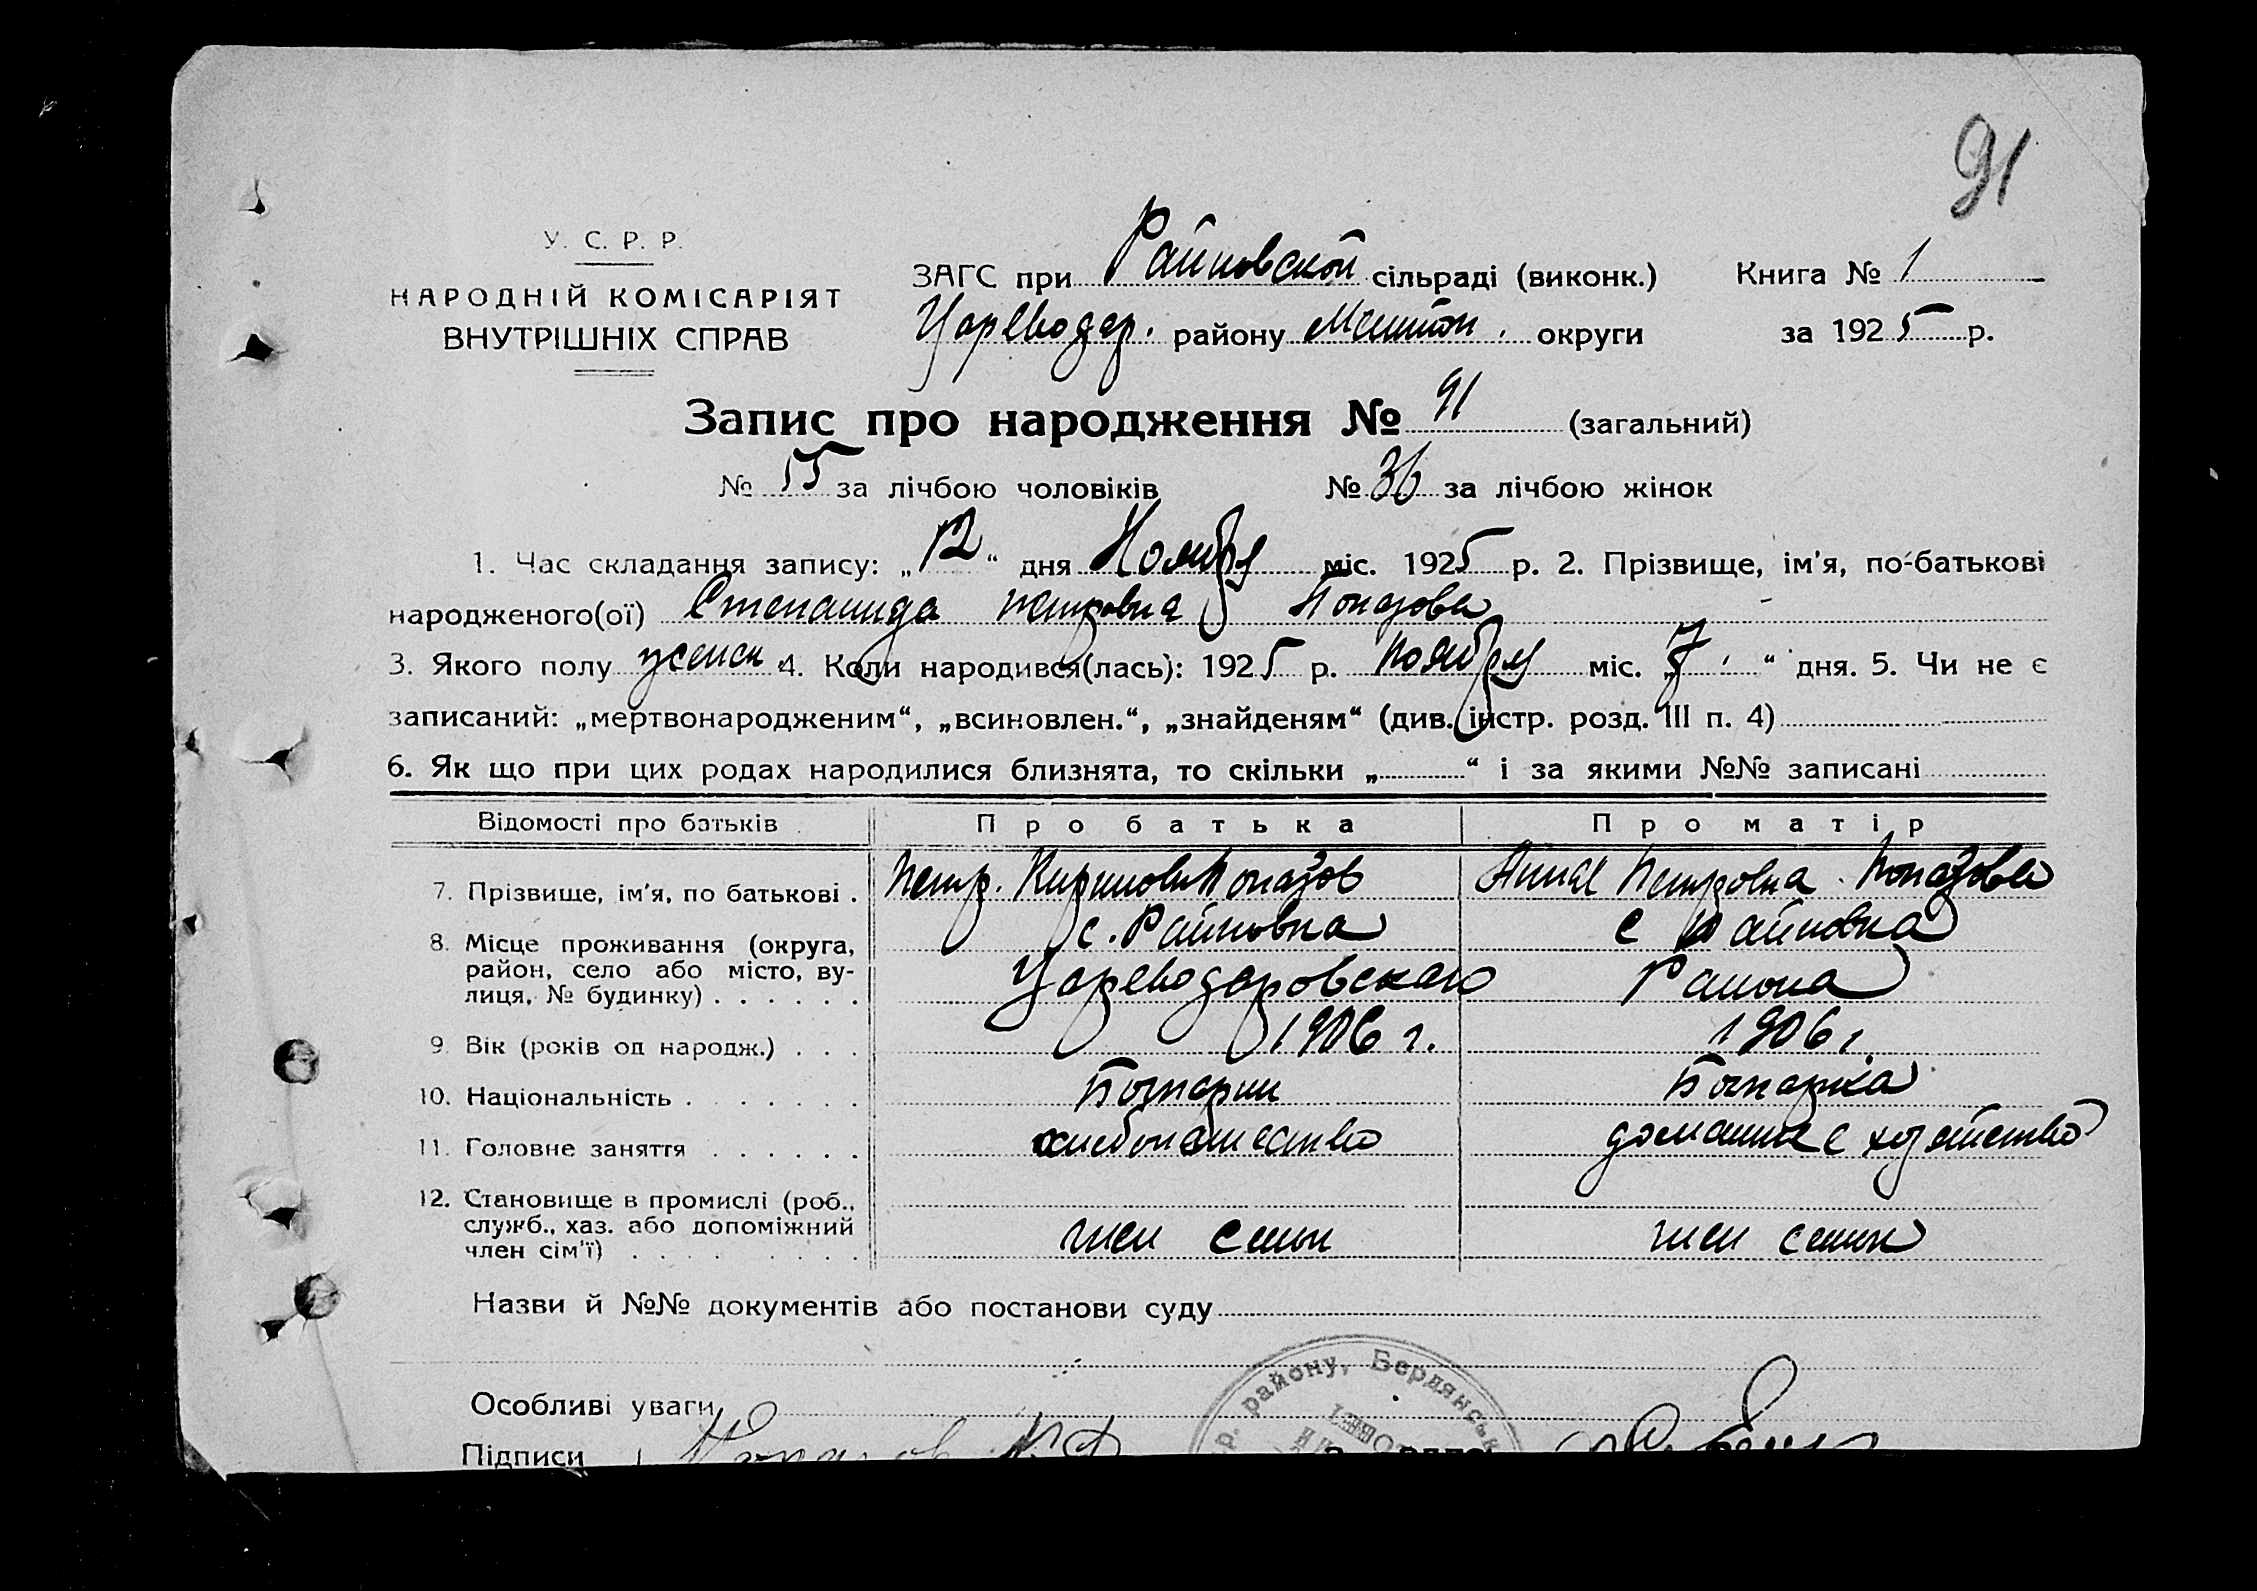 91
У. С. Р. Р.
НАРОДНІЙ КОМІСАРІЯТ
ВНУТРІШНІХ СПРАВ
ЗАГС при Райновской сільраді (виконк.) Книга № 1
Цареводар. району Мелитоп. округи за 1925 р.
Запис про народження № 91 (загальний)
№ 55 за лічбою чоловіків № 36 за лічбою жінок
1. Час складання запису: „12“ дня Ноября міс. 1925 р. 2. Прізвище, ім'я, по-батькові
народженого(ої) Степанида Петровна Копазова
3. Якого полу женск. 4. Коли народився(лась): 1925 р. ноября міс. „7“ дня. 5. Чи не є
записаний: „мертвонародженим“, „всиновлен.“, „знайденям“ (див. інстр. розд. III п. 4)
6. Як що при цих родах народилися близнята, то скільки „ “ і за якими №№ записані
Відомості про батьків Про батька Про матір
7. Прізвище, ім'я, по батькові . Петр. Кирилович Копазов Анна Петровна Копазова
8. Місце проживання (округа, с. Райновка с Райновка
район, село або місто, ву-
лиця, № будинку) . . . . . . Цареводаровского Района
9. Вік (років од народж.) . . . 1906 г. 1906 г.
10. Національність . . . . . . . Болгарин Болгарка
11. Головне заняття . . . . . . хлебопашество домашнее хозяйство
12. Становище в промислі (роб.,
служб., хаз. або допоміжний
член сім'ї) . . . . . . . член семьи член семьи
Назви й №№ документів або постанови суду
Особливі уваги
р. району, Бердянськ
Підписи